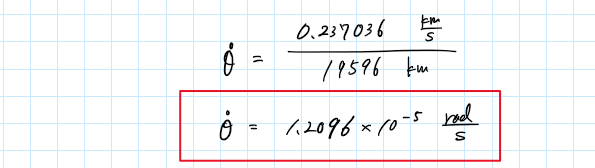 θ̇ = 0.237036 km/s / 19596 km
θ̇ = 1.2096 × 10⁻⁵ rad/s